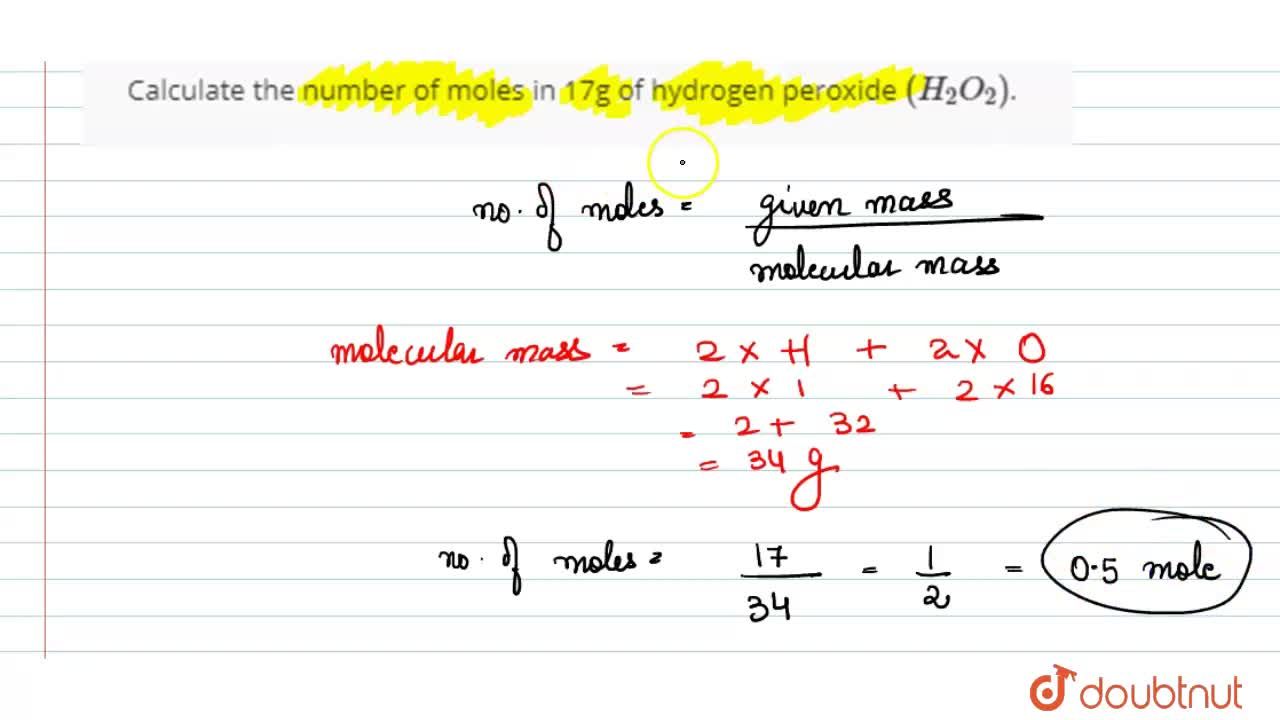 Calculate the number of moles in 17g of hydrogen peroxide (H₂O₂).
no. of moles = given mass / molecular mass
molecular mass = 2 × H + 2 × O
= 2 × 1 + 2 × 16
= 2 + 32
= 34 g
no. of moles = 17/34 = 1/2 = 0.5 mole
doubtnut